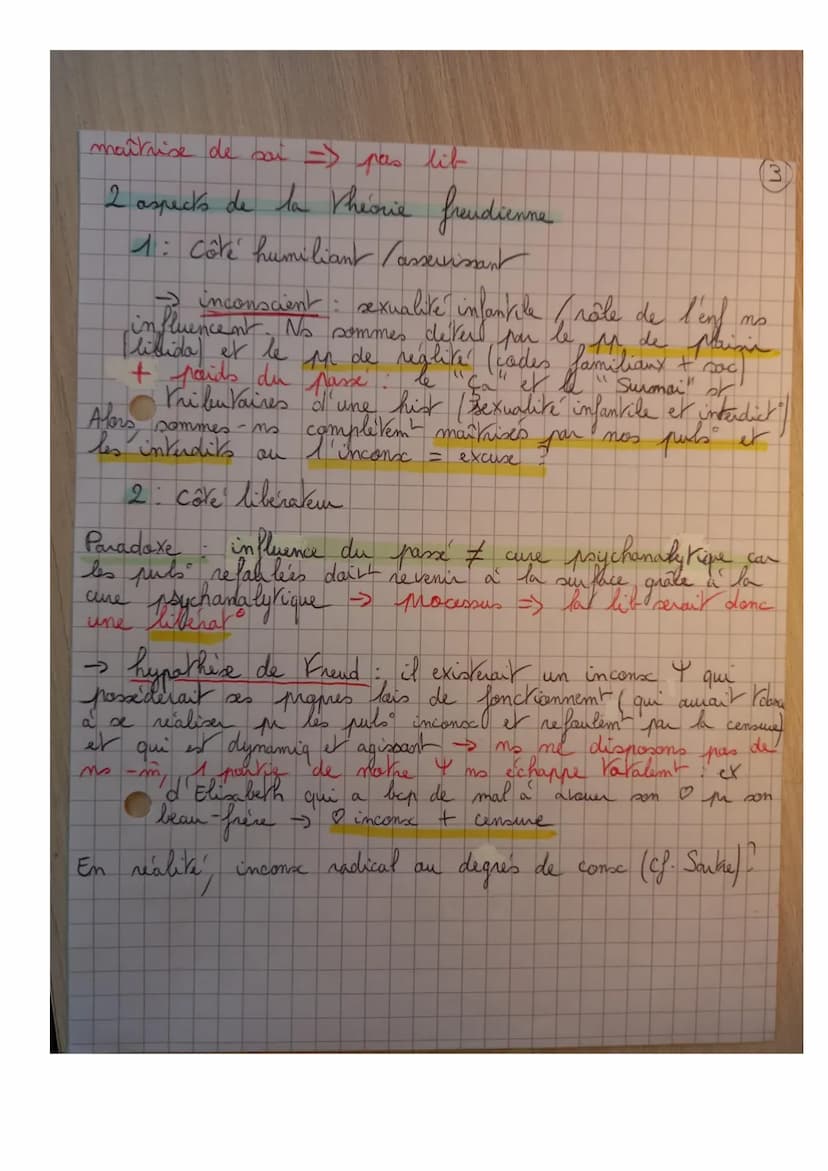 maîtrise de soi => pas lib
3
2 aspects de la théorie freudienne
1 : côté humiliant / asservissant
→ inconscient : sexualité infantile / rôle de l'enf ns
influencent. Ns sommes déter par le pp de plaisir
(libido) et le pp de réalité (codes familiaux + soc)
+ poids du passé : le "ça" et le "Surmoi" st
tributaires d'une hist (sexualité infantile et interdict°)
Alors, sommes-ns complètemt maîtrisés par nos puls° et
les interdits ou l'inconsc = excuse ?
2 : côté libérateur
Paradoxe : influence du passé ≠ cure psychanalytique car
les puls° refoulées doivt revenir à la surface grâce à la
cure psychanalytique → processus => la lib serait donc
une libérat°
→ hypothèse de Freud : il existerait un inconsc Ψ qui
possèderait ses propres lois de fonctionnemt (qui aurait
à se réaliser pr les puls° inconsc et refoulemt par la censure)
et qui est dynamiq et agissant → ns ne disposons pas de
ns -m̂, 1 partie de notre Ψ ns échappe totalemt : ex
d'Elisabeth qui a bcp de mal à avouer son ♡ pr son
beau-frère → ♡ inconsc + censure
En réalité, inconsc radical ou degrés de consc (cf. Sartre) ?